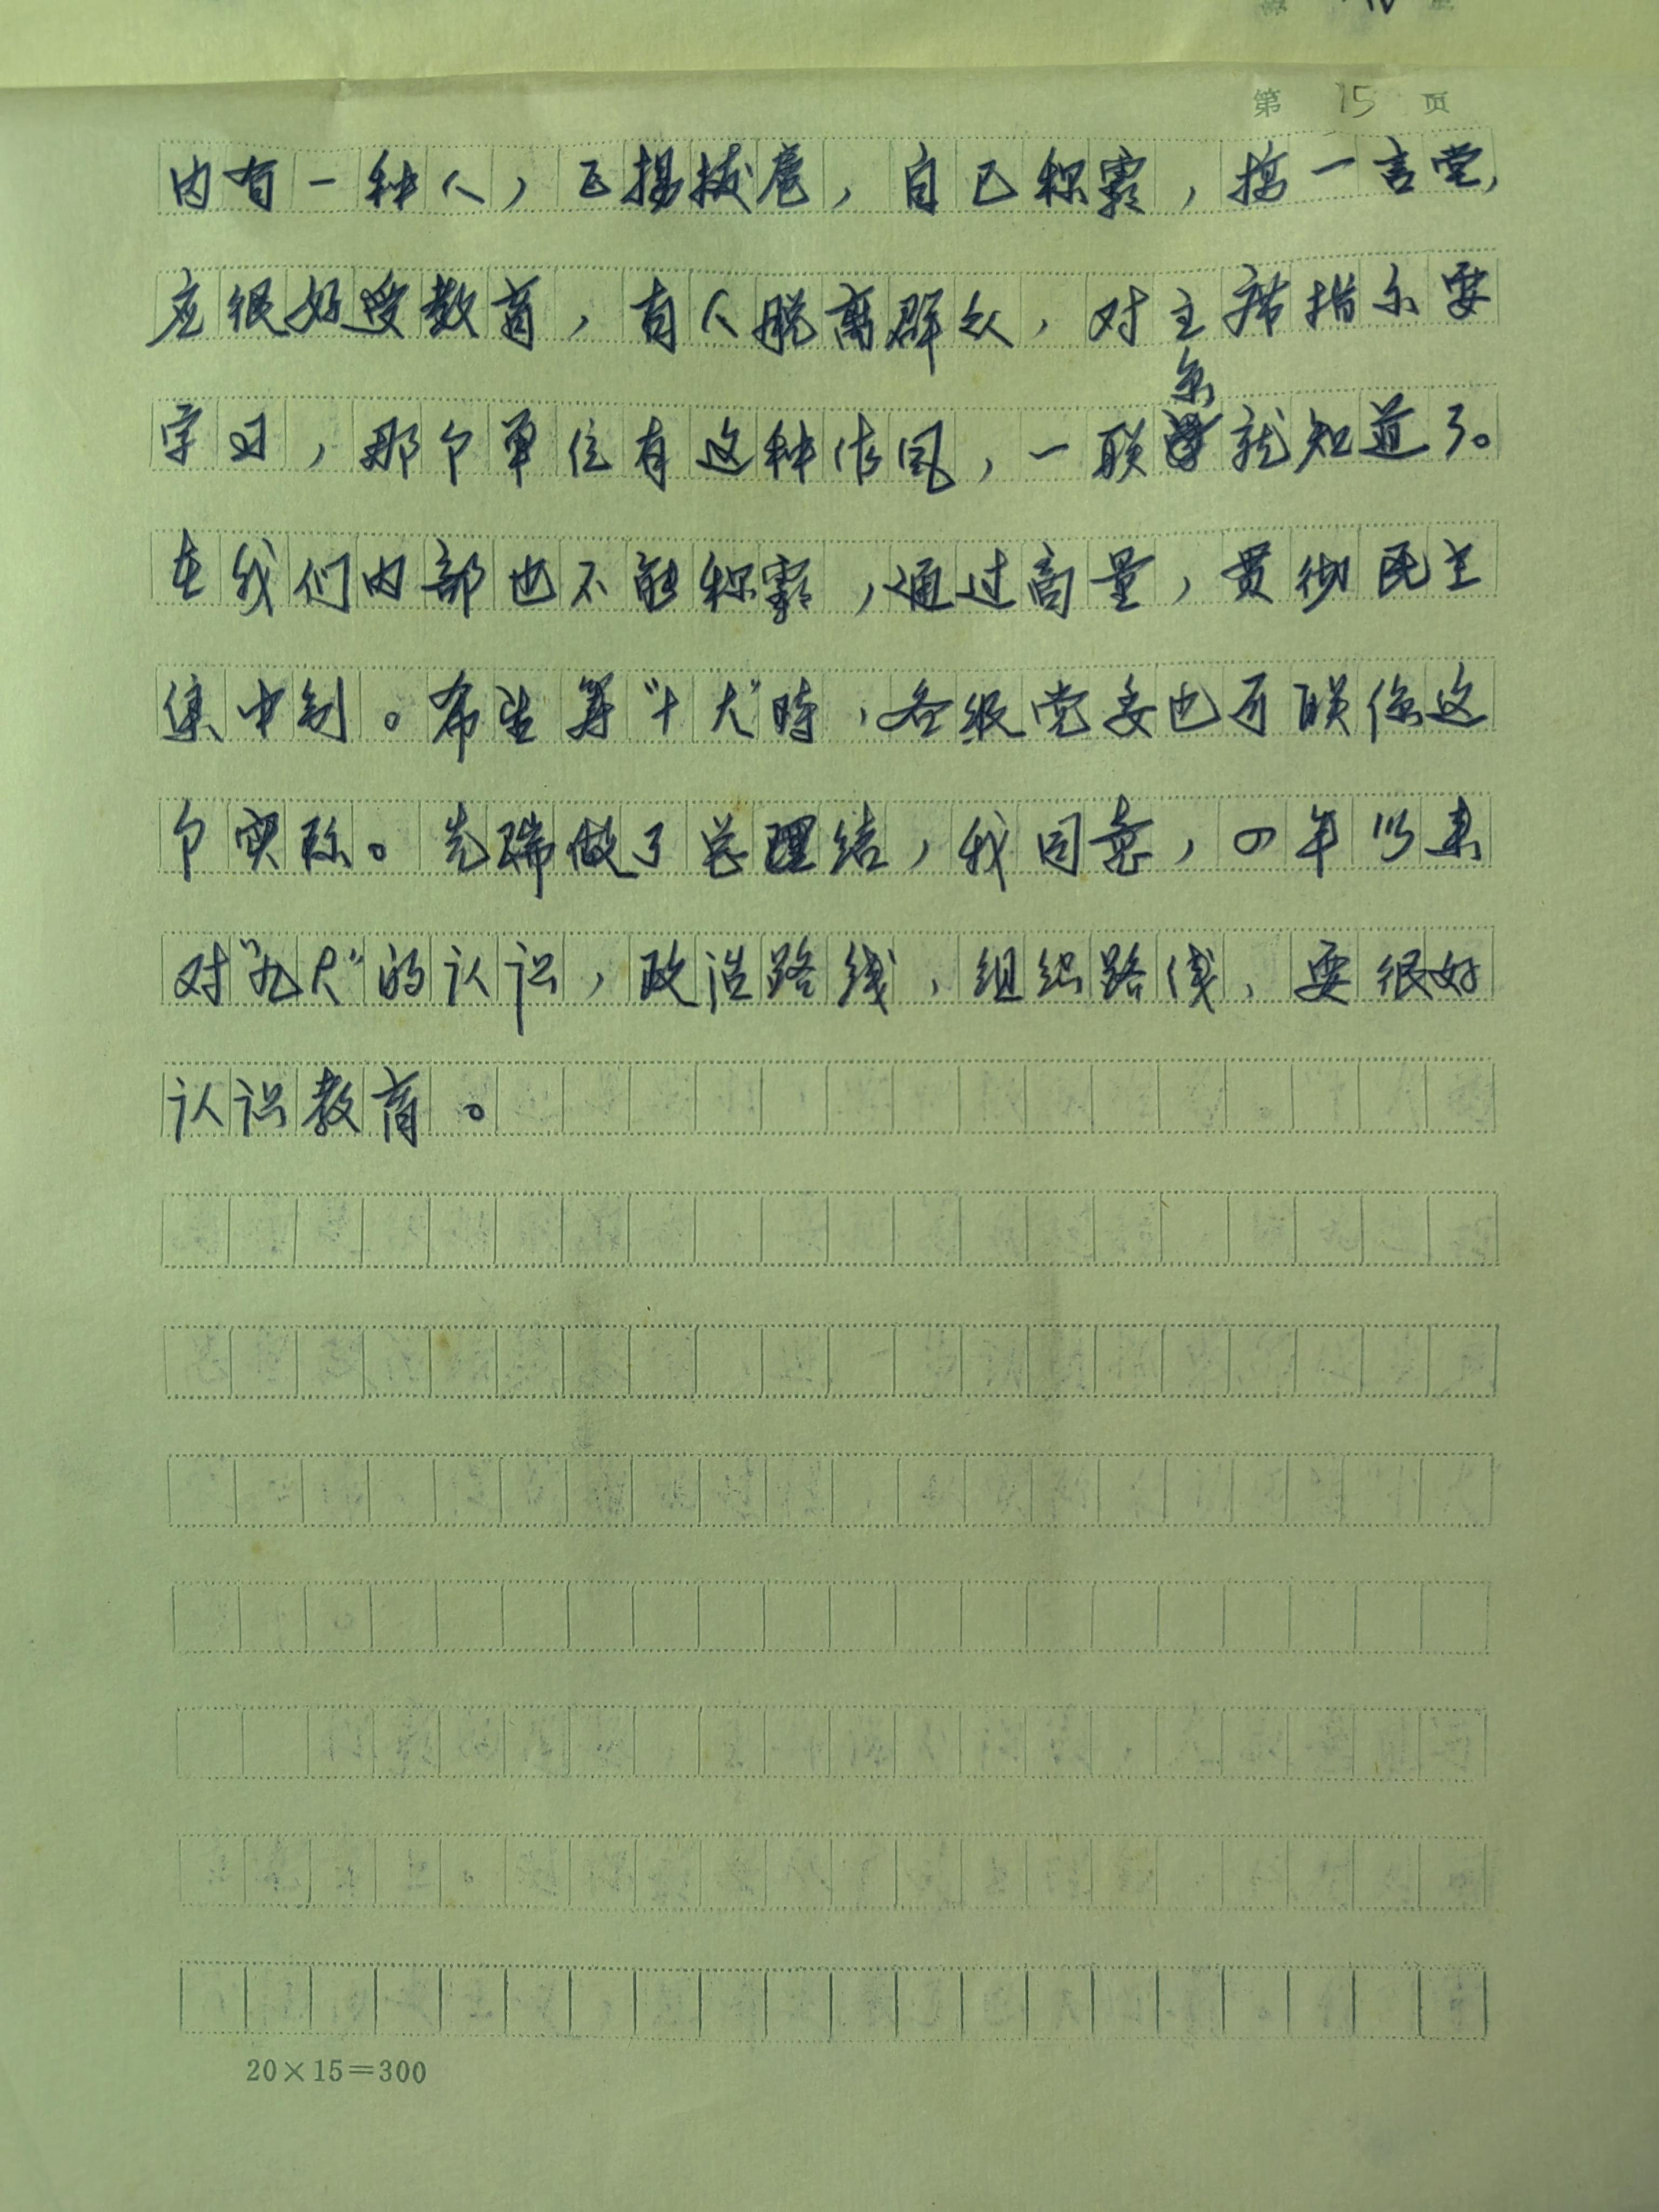 第 15 页
内有一种人，飞扬拔扈，自己称霸，搞一言堂，
应很好受教育，有人脱离群众，对主席指示要
学习，那个单位有这种作风，一联系就知道了。
在我们内部也不能称霸，通过商量，贯彻民主
集中制。希望筹“十大”时，各级党委也可联系这
个实际。先瑞做了总理结，我同意，四年以来
对“九大”的认识，政治路线，组织路线，要很好
认识教育。
20×15=300